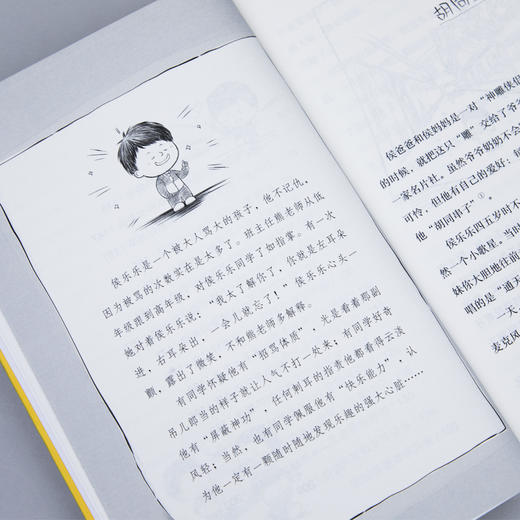 侯乐乐是一个被大人骂大的孩子，他不记仇，
因为被骂的次数实在是太多了。班主任熊老师从低
年级跟到高年级，对侯乐乐同学了如指掌。有一次
她对着侯乐乐说：“我太了解你了，你就是左耳朵
进，右耳朵出，一会儿就忘了！”侯乐乐心头一
颤，露出了微笑，不和熊老师多解释。
有同学怀疑他有“招骂体质”，光是看着那副
吊儿郎当的样子就让人气不打一处来；有同学好奇
他有“屏蔽神功”，任何刺耳的指责他都看得云淡
风轻；当然，也有同学佩服他有“快乐能力”，认
为他一定有一颗随时随地发现乐趣的强大心脏……
胡同
侯爸爸和侯妈妈是一对“神雕侠侣
的时候，就把这只“雕”交给了爷
一家名片社。虽然爷爷奶奶不会
可怜，但他有自己的爱好：
他“胡同串子”①。
侯乐乐四五岁时不
然一个小歌星。当时
妹你大胆地往前
唱的是“通
一大
麦克风